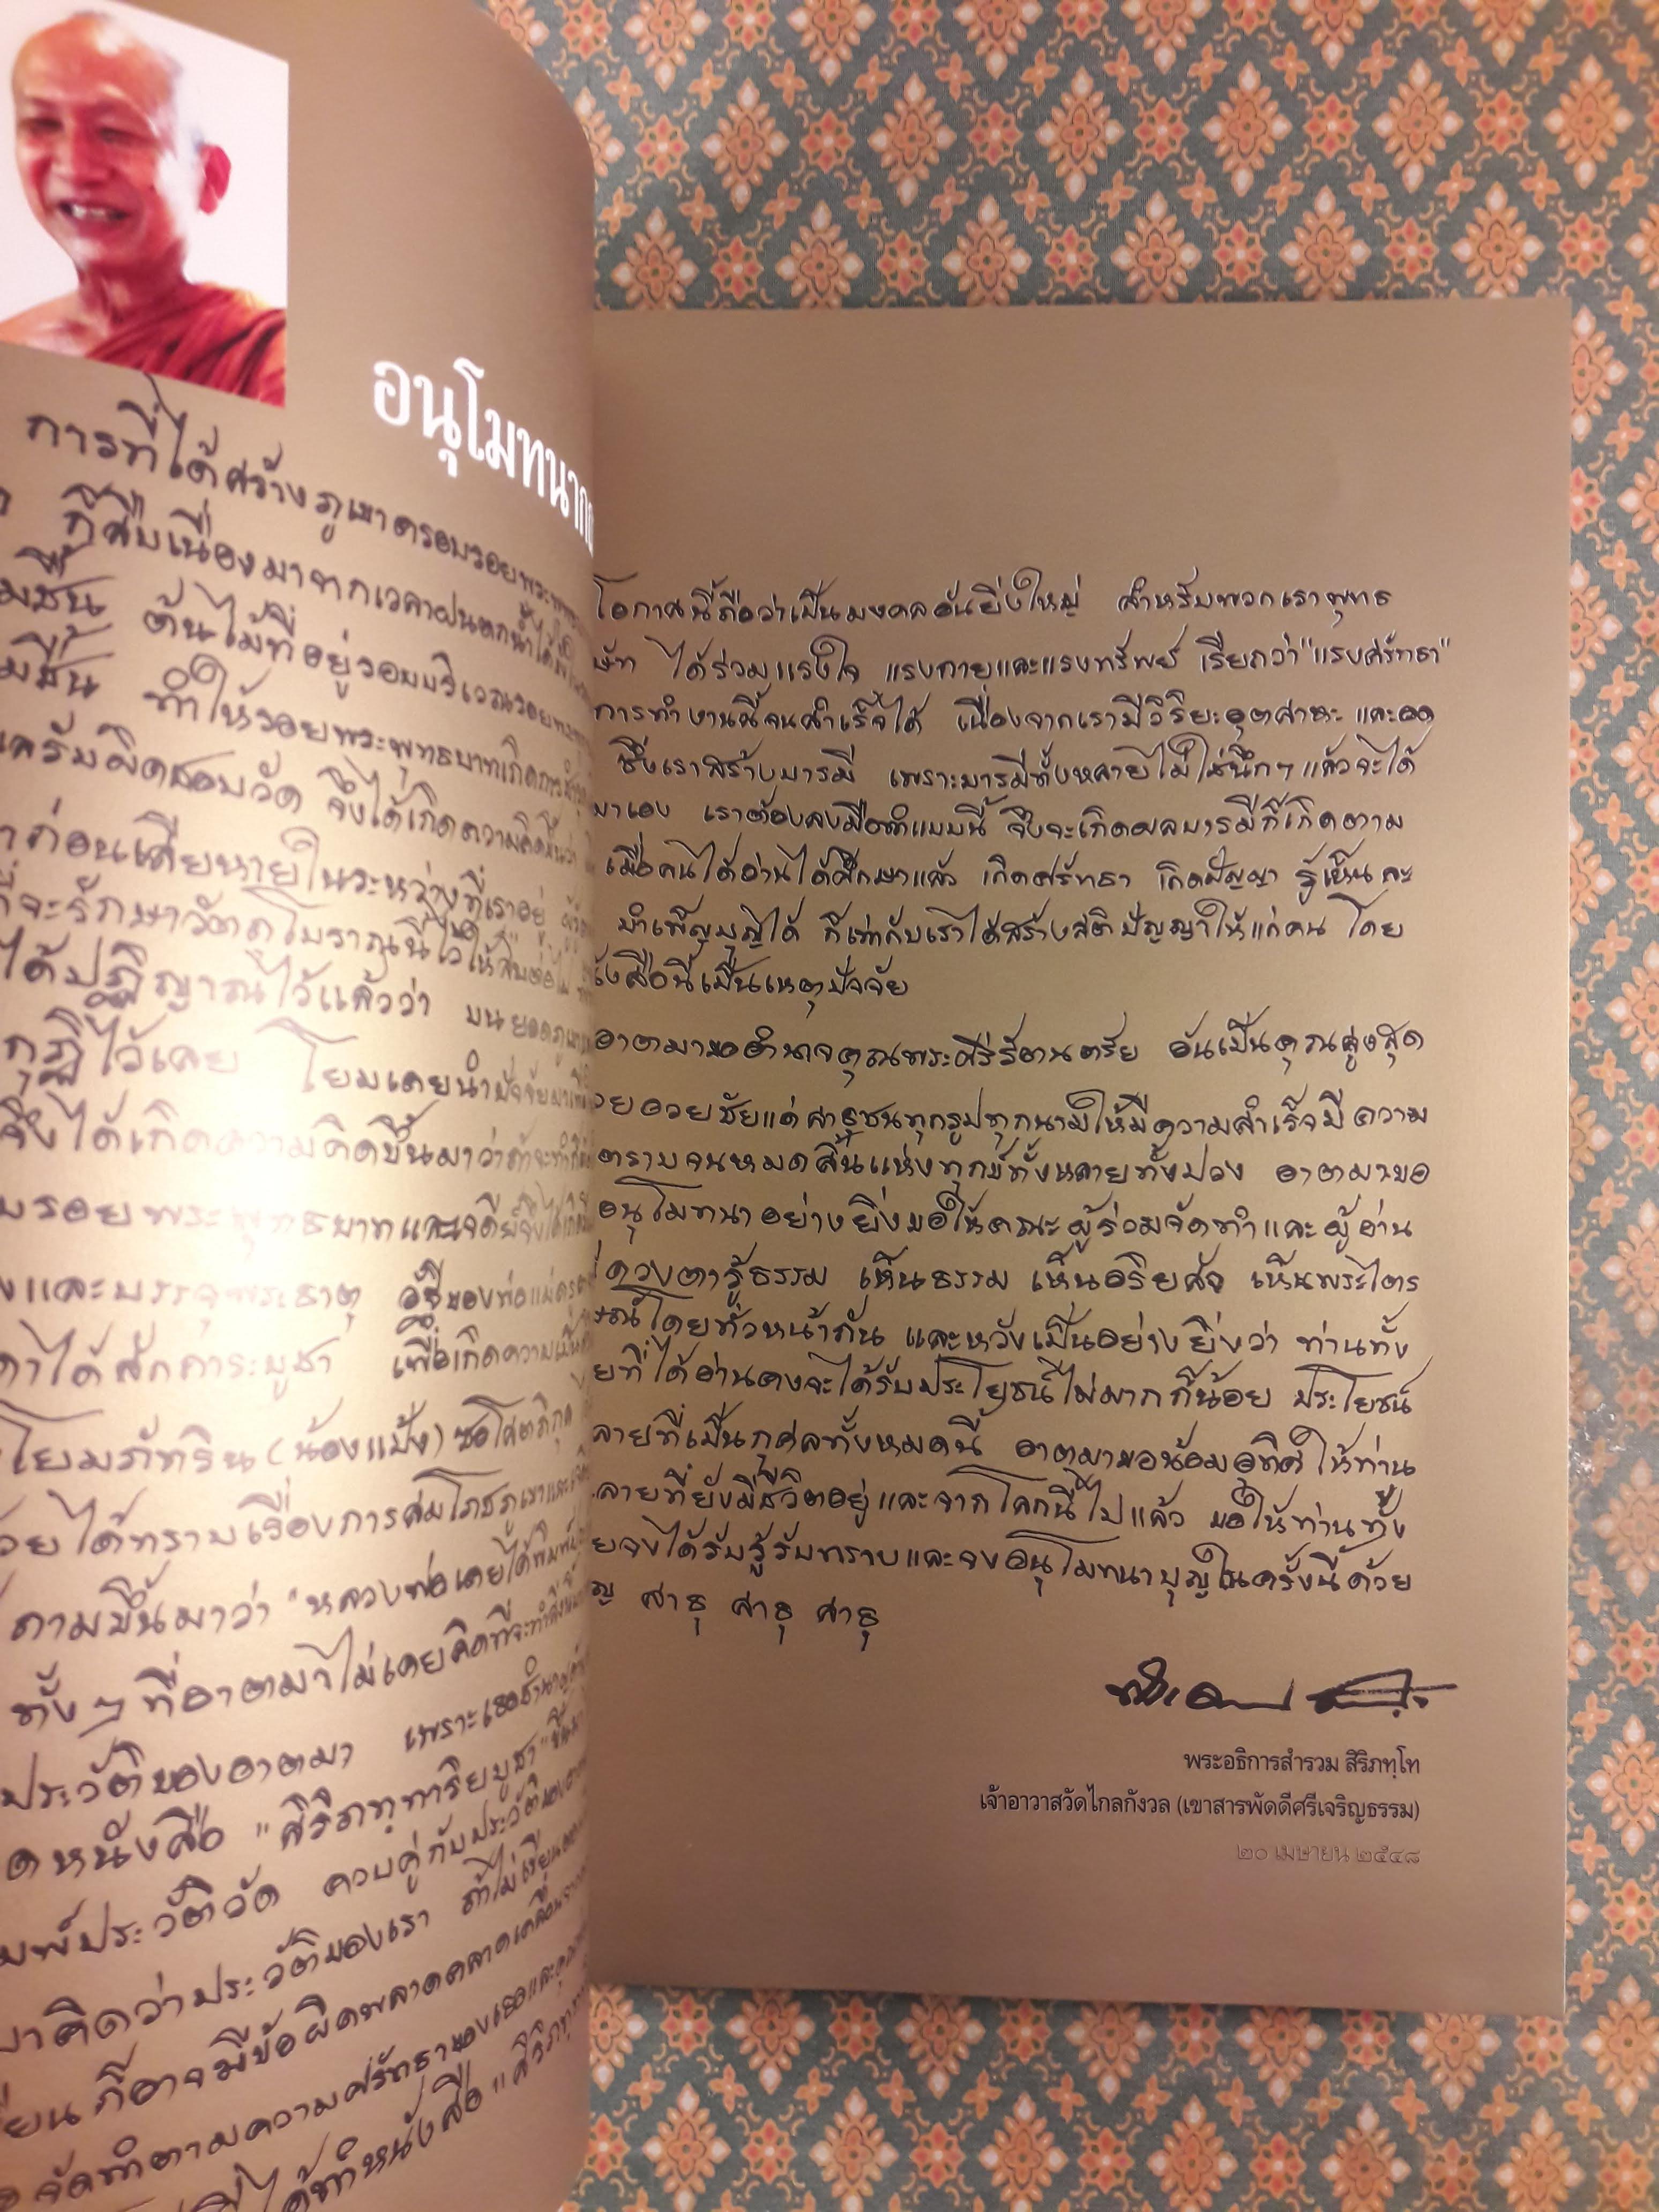 อนุโมทนา
การที่ได้สร้างภูเขาครอบรอยพระพุทธ
ก็สืบเนื่องมาจากเวลาฝนตกน้ำได้
ต้นไม้ที่อยู่รอบบริเวณรอยพระ
ทำให้รอยพระพุทธบาทเกิดการชำรุด
จึงได้เกิดความคิดขึ้นว่า
ก่อนเสียหายในระหว่างที่เราอยู่
จะรักษาวัตถุโบราณนี้ไว้ให้สืบต่อไป
ได้ปฏิญาณไว้แล้วว่า บนยอดภูเขา
กุฏิไว้เลย โยมเคยนำปัจจัยมา
จึงได้เกิดความคิดขึ้นมาว่าถ้าจะทำ
รอยพระพุทธบาทและเจดีย์จึงได้
และบรรจุพระธาตุ อัฐิของพ่อแม่ครู
ได้สักการะบูชา เพื่อเกิดความเป็น
โยมภัทริน (น้องแป้ง) ซอโสตถิกุล
ได้ทราบเรื่องการสมโภชภูเขาและ
ถามขึ้นมาว่า "หลวงพ่อเคยได้พิมพ์
ทั้งๆ ที่อาตมาไม่เคยคิดที่จะทำ
ประวัติของอาตมา เพราะเธอ
หนังสือ "สิริภทฺทาริยบูชา" ขึ้นมา
ประวัติวัด ควบคู่กับประวัติของ
คิดว่าประวัติของเรา ถ้าไม่เขียน
ก็อาจมีข้อผิดพลาดคลาดเคลื่อน
จัดทำตามความศรัทธาของเธอและ
ได้ทำหนังสือ "สิริภทฺ
โอกาสนี้ถือว่าเป็นมงคลอันยิ่งใหญ่ สำหรับพวกเราพุทธ
ษัท ได้ร่วมแรงใจ แรงกายและแรงทรัพย์ เรียกว่า "แรงศรัทธา"
การทำงานนี้จนสำเร็จได้ เนื่องจากเรามีวิริยะอุตสาหะ และอด
ซึ่งเราสร้างบารมี เพราะบารมีทั้งหลายไม่ใช่นึกๆ แล้วจะได้
มาเอง เราต้องลงมือทำแบบนี้ จึงจะเกิดผลบารมีก็เกิดตาม
เมื่อคนได้อ่านได้ศึกษาแล้ว เกิดศรัทธา เกิดปัญญา รู้เห็นละ
บำเพ็ญบุญได้ ก็เท่ากับเราได้สร้างสติปัญญาให้แก่คน โดย
ังสือนี้เป็นเหตุปัจจัย
อาตมาขออำนาจคุณพระศรีรัตนตรัย อันเป็นคุณสูงสุด
วยอวยชัยแด่สาธุชนทุกรูปทุกนามให้มีความสำเร็จมีความ
ตราบจนหมดสิ้นแห่งทุกข์ทั้งหลายทั้งปวง อาตมาขอ
อนุโมทนาอย่างยิ่งขอให้คณะผู้ร่วมจัดทำและผู้อ่าน
ดวงตารู้ธรรม เห็นธรรม เห็นอริยสัจ เห็นพระไตร
ณ์โดยทั่วหน้ากัน และหวังเป็นอย่างยิ่งว่า ท่านทั้ง
ยที่ได้อ่านคงจะได้รับประโยชน์ไม่มากก็น้อย ประโยชน์
ลายที่เป็นกุศลทั้งหมดนี้ อาตมาขอน้อมอุทิศให้ท่าน
ลายที่ยังมีชีวิตอยู่และจากโลกนี้ไปแล้ว ขอให้ท่านทั้ง
ยจงได้รับรู้รับทราบและจงอนุโมทนาบุญในครั้งนี้ด้วย
ญ สาธุ สาธุ สาธุ
พระอธิการสำรวม สิริภทฺโท
เจ้าอาวาสวัดไกลกังวล (เขาสารพัดดีศรีเจริญธรรม)
๒๐ เมษายน ๒๕๔๘